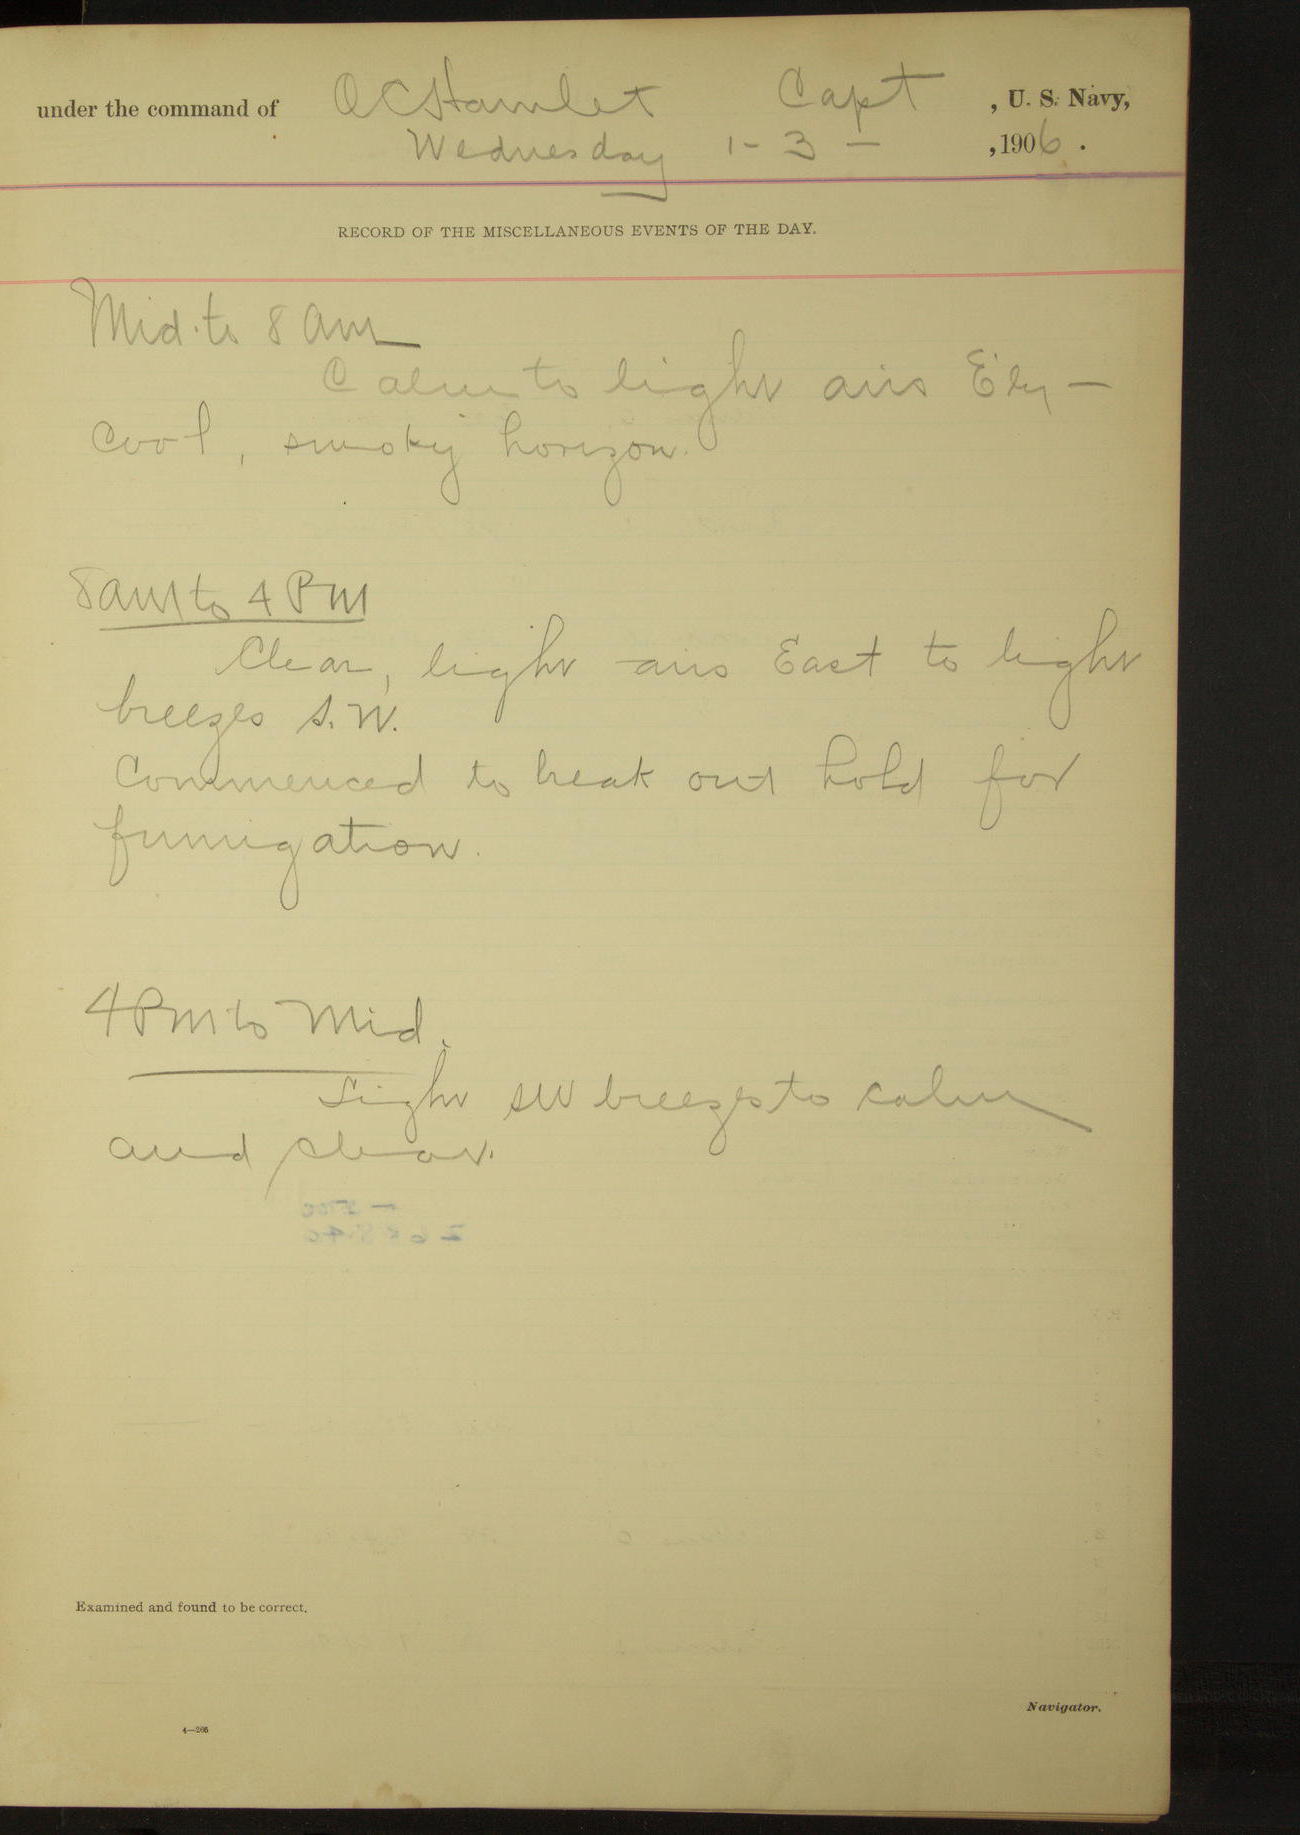 under the command of O C Hamlet Capt , U. S. Navy,
Wednesday 1-3- , 1906.
RECORD OF THE MISCELLANEOUS EVENTS OF THE DAY.
Mid. to 8 am
Calm to light airs E'ly —
Cool, smoky horizon.
8 am to 4 PM
Clear, light airs East to light
breezes S.W.
Commenced to break out hold for
fumigation.
4 PM to Mid.
Light SW breezes to calm
and clear.
Examined and found to be correct.
Navigator.
4—266